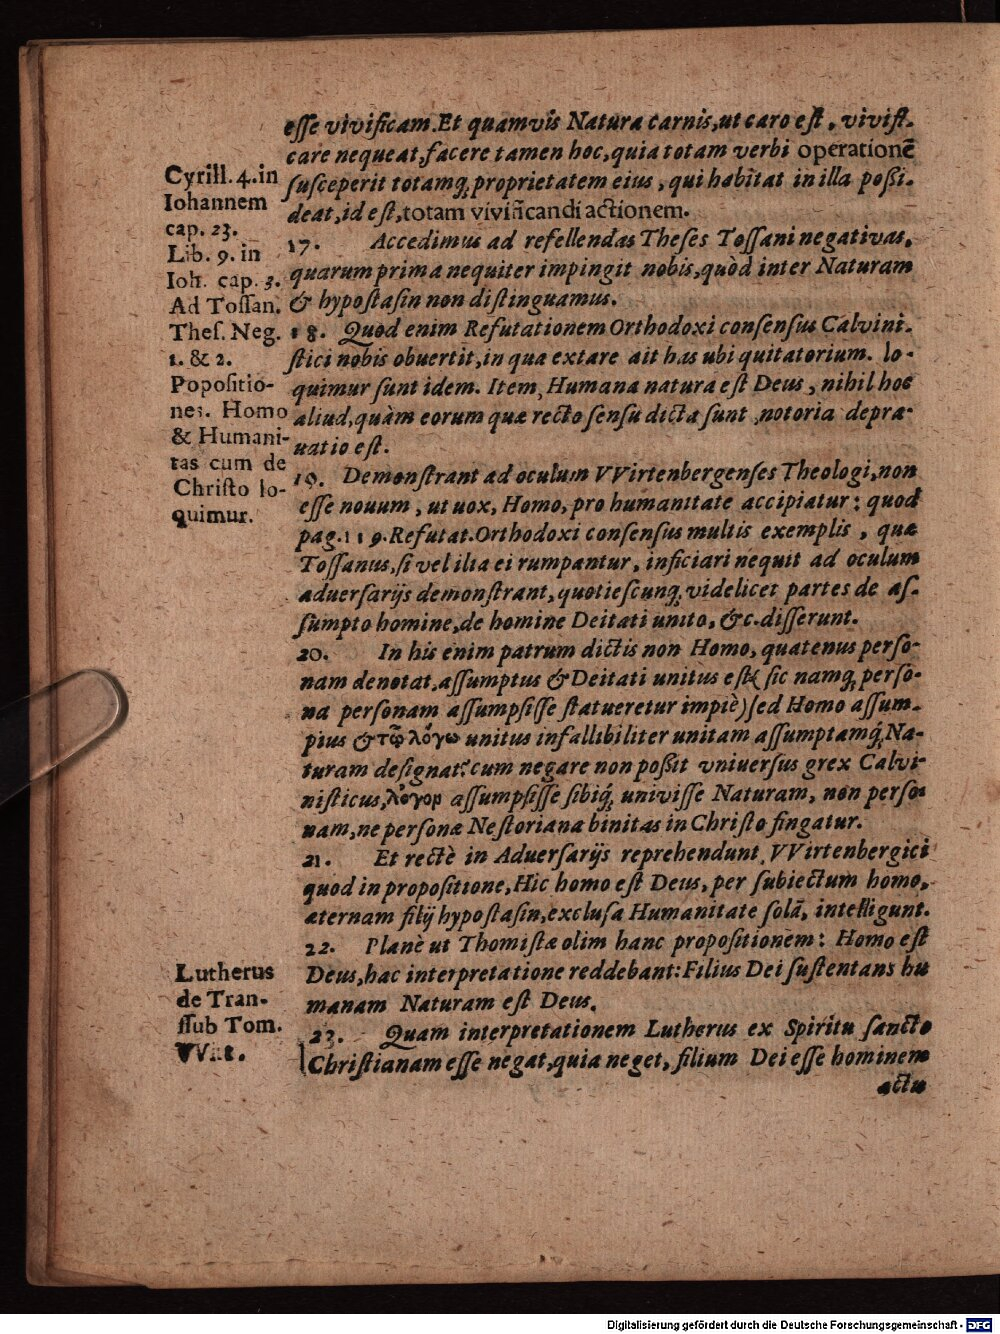 esse vivificam. Et quamvis Natura carnis, ut caro est, vivifi-
care nequeat, facere tamen hoc, quia totam verbi operationẽ
susceperit totamq́; proprietatem eius, qui habitat in illa possi-
deat, id est, totam vivificandi actionem.
17. Accedimus ad refellendas Theses Tossani negativas,
quarum prima nequiter impingit nobis, quòd inter Naturam
& hypostasin non distinguamus.
18. Quod enim Refutationem Orthodoxi consensus Calvini-
stici nobis obuertit, in qua extare ait has ubi quitatorium. lo-
quimur sunt idem. Item, Humana natura est Deus, nihil hoc
aliud, quàm eorum quæ recto sensu dicta sunt, notoria depra-
uatio est.
19. Demonstrant ad oculum VVirtenbergenses Theologi, non
esse nouum, ut uox, Homo, pro humanitate accipiatur: quod
pag. 119. Refutat. Orthodoxi consensus multis exemplis, quæ
Tossanus, si vel ilia ei rumpantur, inficiari nequit ad oculum
aduersarijs demonstrant, quotiescunq́; videlicet partes de as-
sumpto homine, de homine Deitati unito, &c. disserunt.
20. In his enim patrum dictis non Homo, quatenus perso-
nam denotat, assumptus & Deitati unitus est (sic namq́; perso-
na personam assumpsisse statueretur impiè) sed Homo assum-
ptus & τῷ λόγω unitus infallibiliter unitam assumptamq́; Na-
turam designat: cum negare non possit vniuersus grex Calvi-
nisticus, λόγον assumpsisse sibiq́; univisse Naturam, non perso-
nam, ne personæ Nestoriana binitas in Christo fingatur.
21. Et rectè in Aduersarijs reprehendunt VVirtenbergici
quod in propositione, Hic homo est Deus, per subiectum homo,
æternam filij hypostasin, exclusa Humanitate solā, intelligunt.
22. Planè ut Thomistæ olim hanc propositionem: Homo est
Deus, hac interpretatione reddebant: Filius Dei sustentans hu
manam Naturam est Deus.
23. Quam interpretationem Lutherus ex Spiritu sancto
Christianam esse negat, quia neget, filium Dei esse hominem
actu
Cyrill. 4. in
Iohannem
cap. 23.
Lib. 9. in
Ioh. cap. 3.
Ad Tossan.
Thes. Neg.
1. & 2.
Popositio-
nes. Homo
& Humani-
tas cum de
Christo lo-
quimur.
Lutherus
de Tran-
ssub Tom.
VVit.
Digitalisierung gefördert durch die Deutsche Forschungsgemeinschaft - DFG